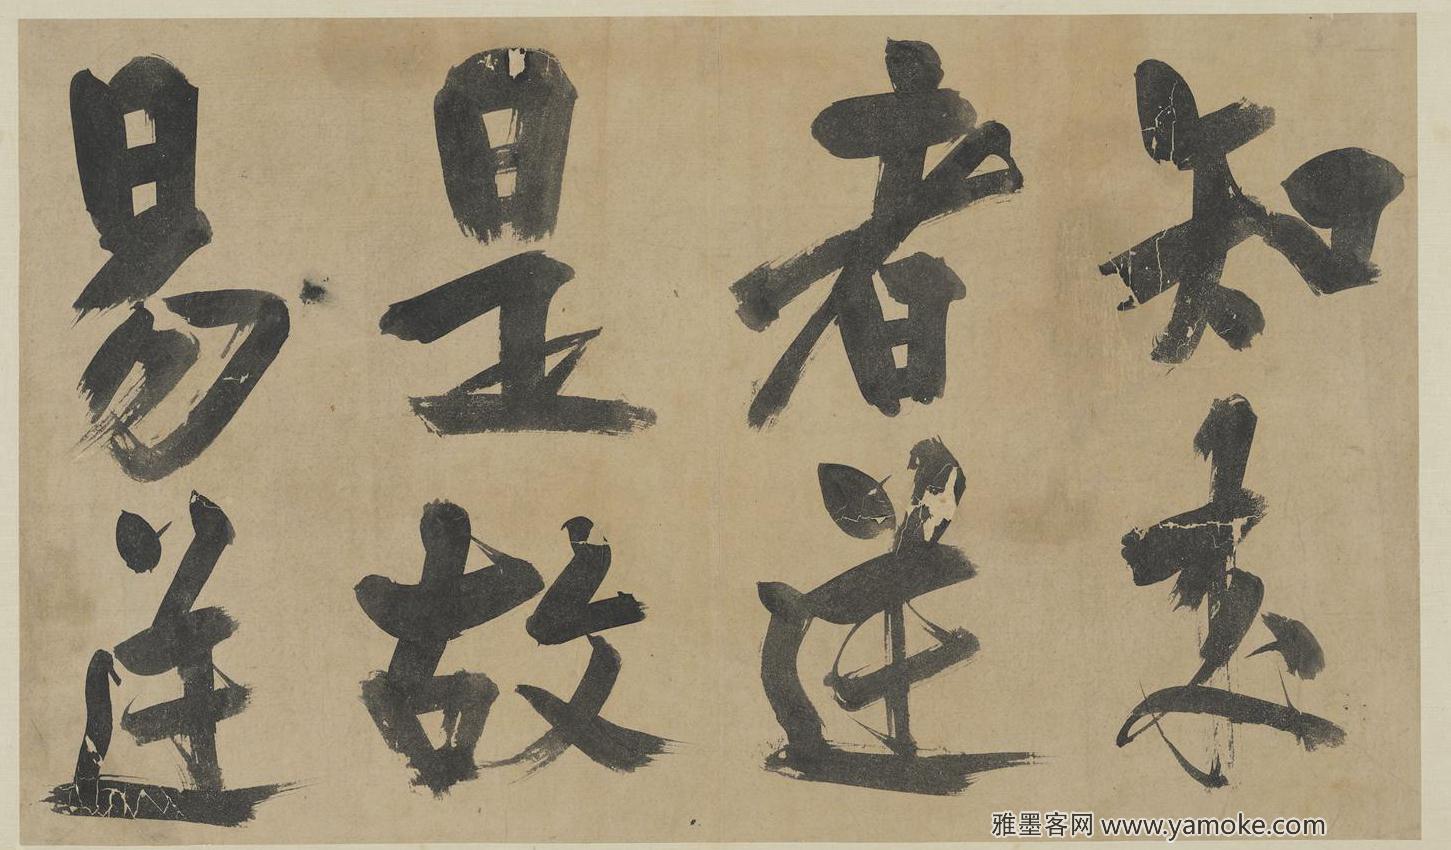 知來
者逆
是故
易逆
雅墨客网 www.yamoke.com